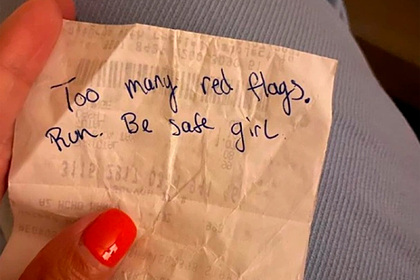 Too many red flags.
Run. Be safe girl.